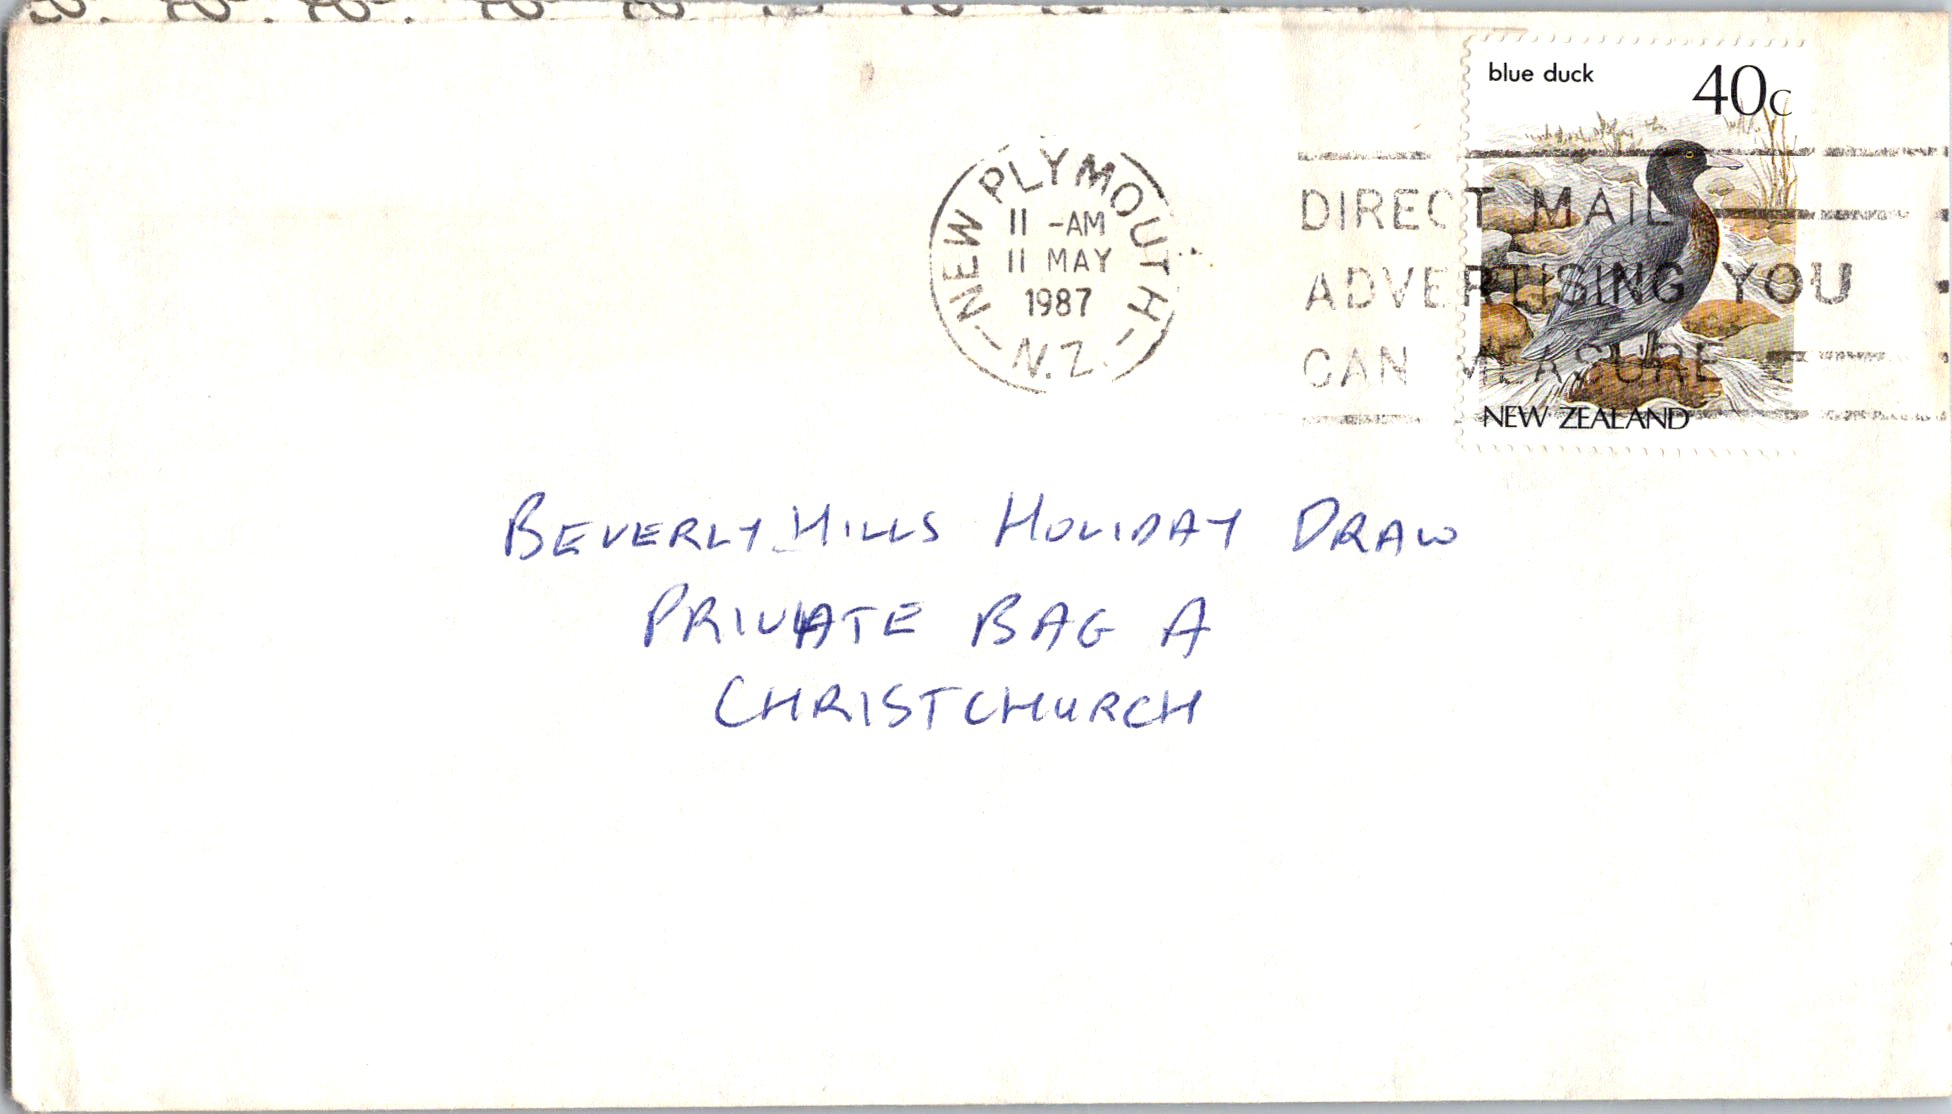 blue duck 40c
NEW ZEALAND
NEW PLYMOUTH
11 -AM
11 MAY
1987
N.Z.
DIRECT MAIL
ADVERTISING YOU
CAN MEASURE
BEVERLY HILLS HOLIDAY DRAW
PRIVATE BAG A
CHRISTCHURCH